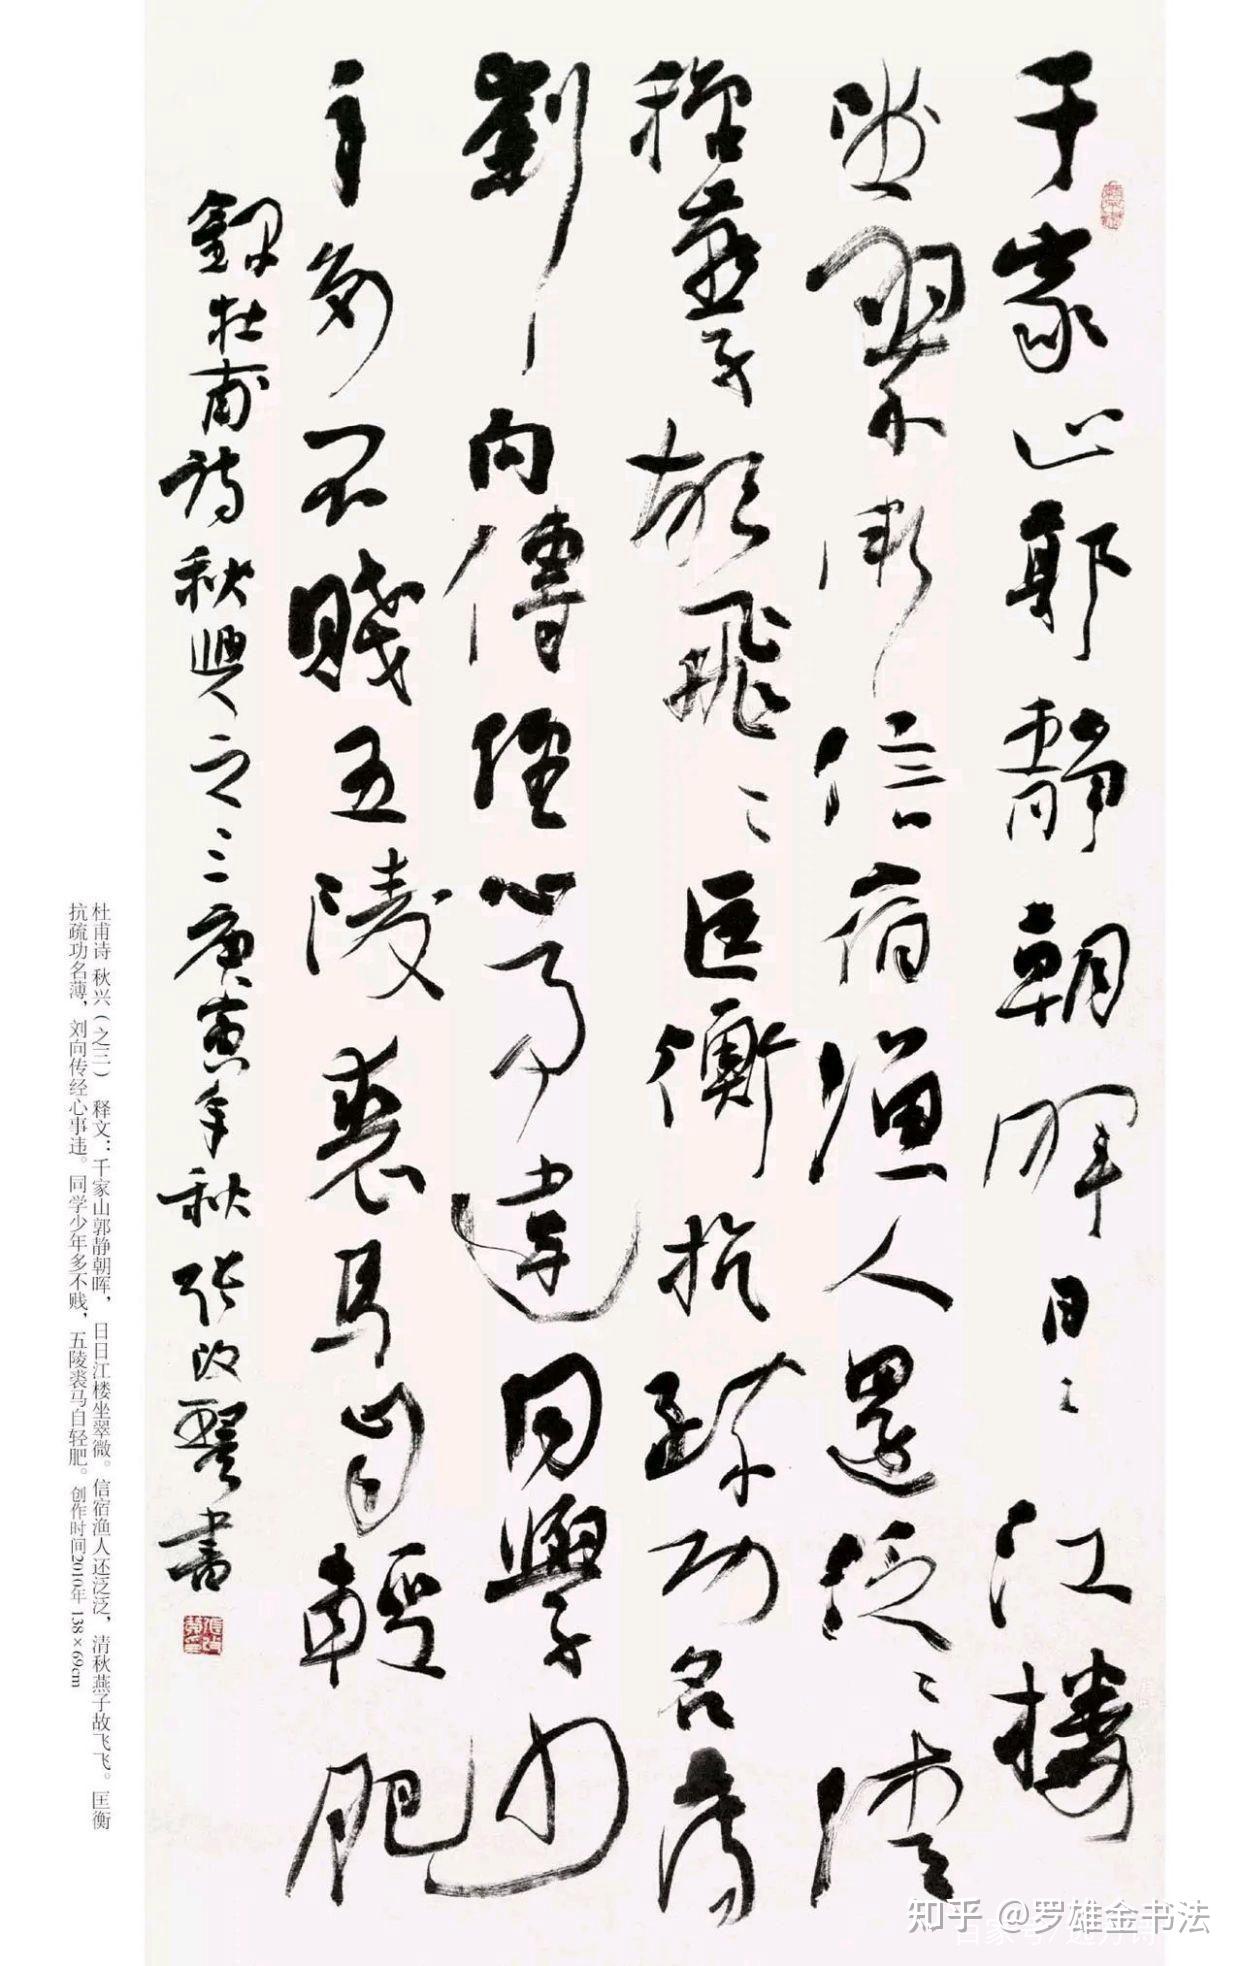 千家山郭靜朝暉日〻江樓
坐翠微信宿漁人還泛〻清
秋燕子故飛〻匡衡抗疏功名薄
劉向傳經心事違同學少
年多不賤五陵裘馬自輕肥
錄杜甫詩秋興之三庚寅年秋張改琴書
杜甫诗 秋兴（之三） 释文：千家山郭静朝晖，日日江楼坐翠微。信宿渔人还泛泛，清秋燕子故飞飞。匡衡
抗疏功名薄，刘向传经心事违。同学少年多不贱，五陵裘马自轻肥。创作时间2010年 138×69cm
知乎 @罗雄金书法